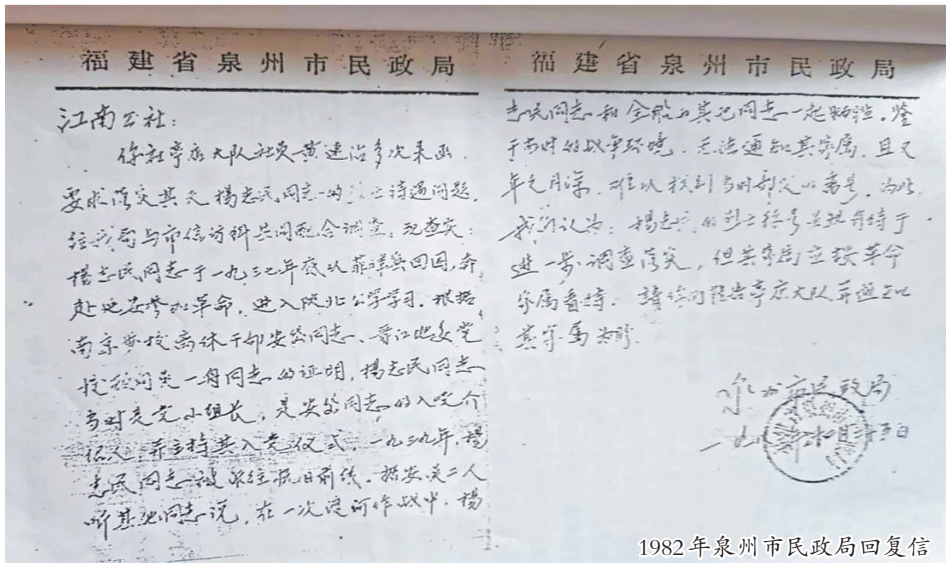 福建省泉州市民政局
江南公社：
你社亭店大队社员黄速治多次来函，
要求落实其父杨志民同志的烈士待遇问题，
经我局与市信访科共同配合调查，现查实：
杨志民同志于一九三七年底从菲律宾回国，奔
赴延安参加革命，进入陕北公学学习，根据
南京 校离休干部安岱同志、晋江地委党
校顾问吴一舟同志的证明，杨志民同志
当时是党小组长，是安岱同志的入党介
绍人，并主持其入党仪式，一九三九年，杨
志民同志被派往抗日前线。据安、吴二人
听其他同志说，在一次渡河作战中，杨
福建省泉州市民政局
志民同志和全船的其他同志一起牺牲。鉴
于当时的战争环境，无法通知其家属，且又
年久月深，难以找到当时部队的番号，为此
我们认为：杨志民的烈士称号 待于
进一步调查落实，但其家属应按革命
家属看待。请你们转告亭店大队并通知
其家属为盼
泉州市民政局
一九八 年 月 日
1982年泉州市民政局回复信